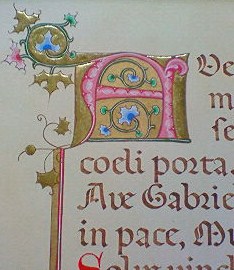 AVe
m
fe
coeli porta.
Ave Gabrie
in pace, Mu
Solve vinc